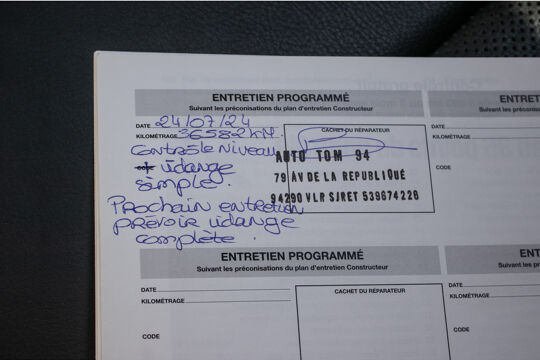 ENTRETIEN PROGRAMMÉ
Suivant les préconisations du plan d'entretien Constructeur
DATE 24/07/24
KILOMÉTRAGE 36582KM.
Contrôle Niveau
vidange
simple.
Prochain entretien
prévoir vidange
complète.
CACHET DU RÉPARATEUR
AUTO TOM 94
79 AV DE LA REPUBLIQUE
94290 VLR SJRET 539674228
ENT
Suivant les pr
DATE
KILOMÉTRAGE
CODE
ENTRETIEN PROGRAMMÉ
Suivant les préconisations du plan d'entretien Constructeur
DATE
KILOMÉTRAGE
CODE
CACHET DU RÉPARATEUR
ENT
Suivant les pré
DATE
KILOMÉTRAGE
CODE